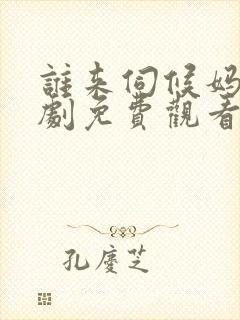 誰来伺候妈
劇免費觀看
孔慶芝